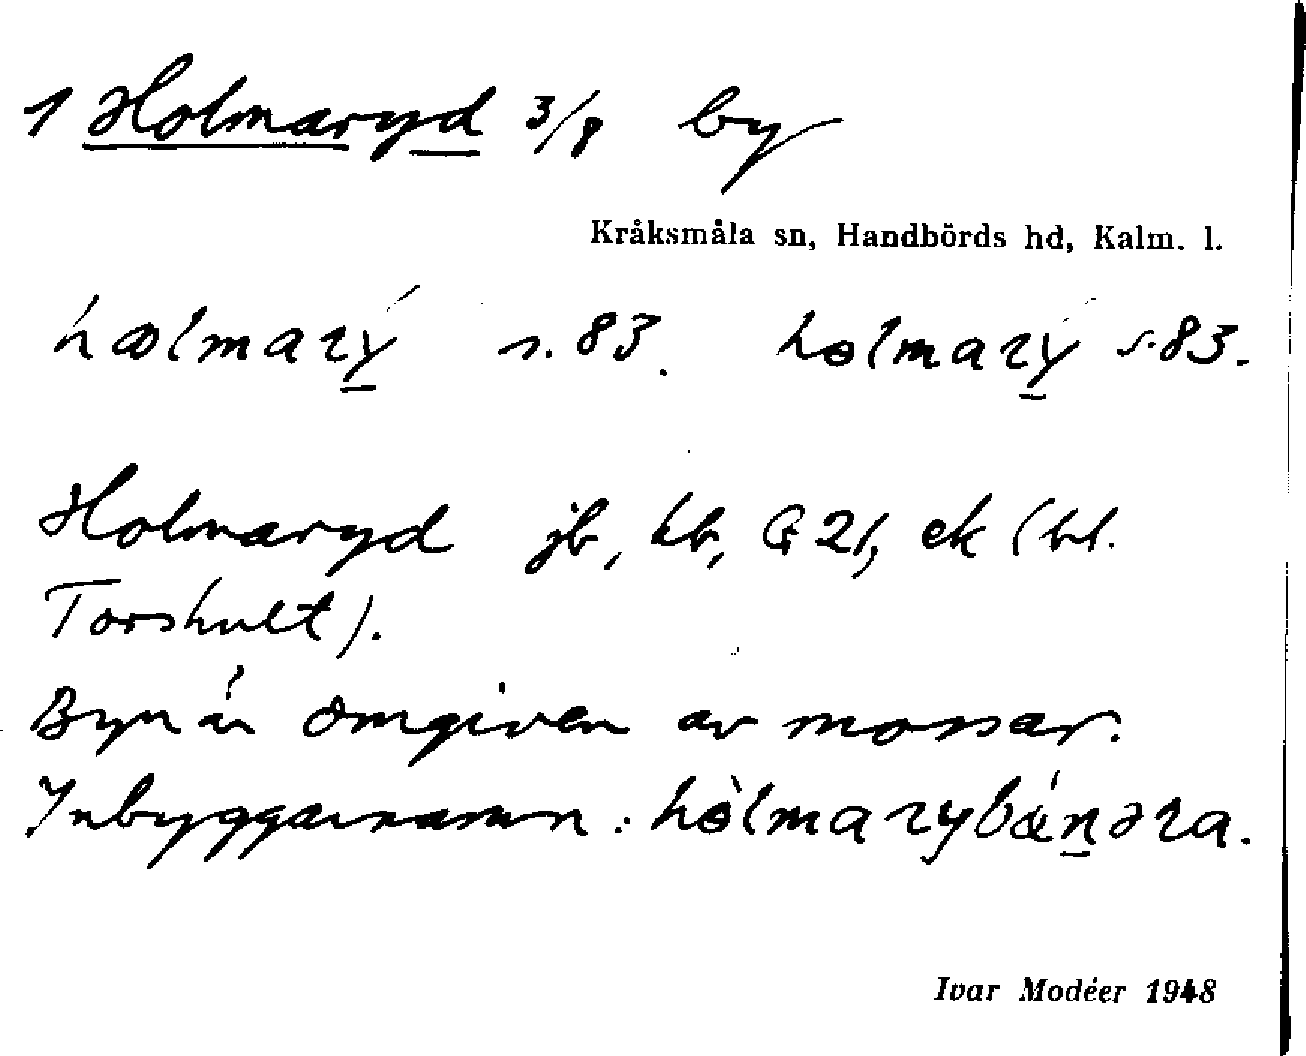 1 Holmaryd 3/8 by
Kråksmåla sn, Handbörds hd, Kalm. l.
hɷlmarý s. 83. hɵlmarý s. 83.
Holmaryd jb, kb, G 21, ek (bl.
Torshult).
Byn är omgiven av mossar.
Inbyggarnamn: hɵ̀lmarybǽnəra.
Ivar Modéer 1948